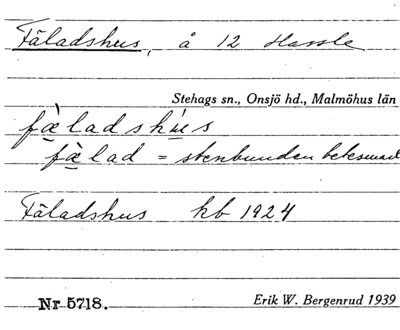 Fäladshus, å 12 Hassle
Stehags sn., Onsjö hd., Malmöhus län
fæ̀ladshús
fæ̀lad = stenbunden betesmark
Fäladshus kb 1924
Nr 5718. Erik W. Bergenrud 1939